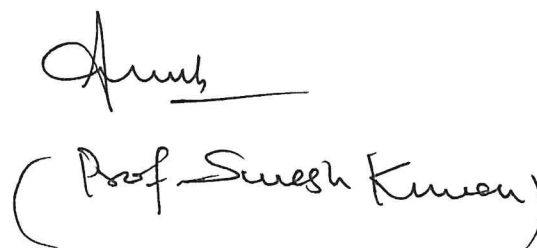 (Prof. Suresh Kumar)